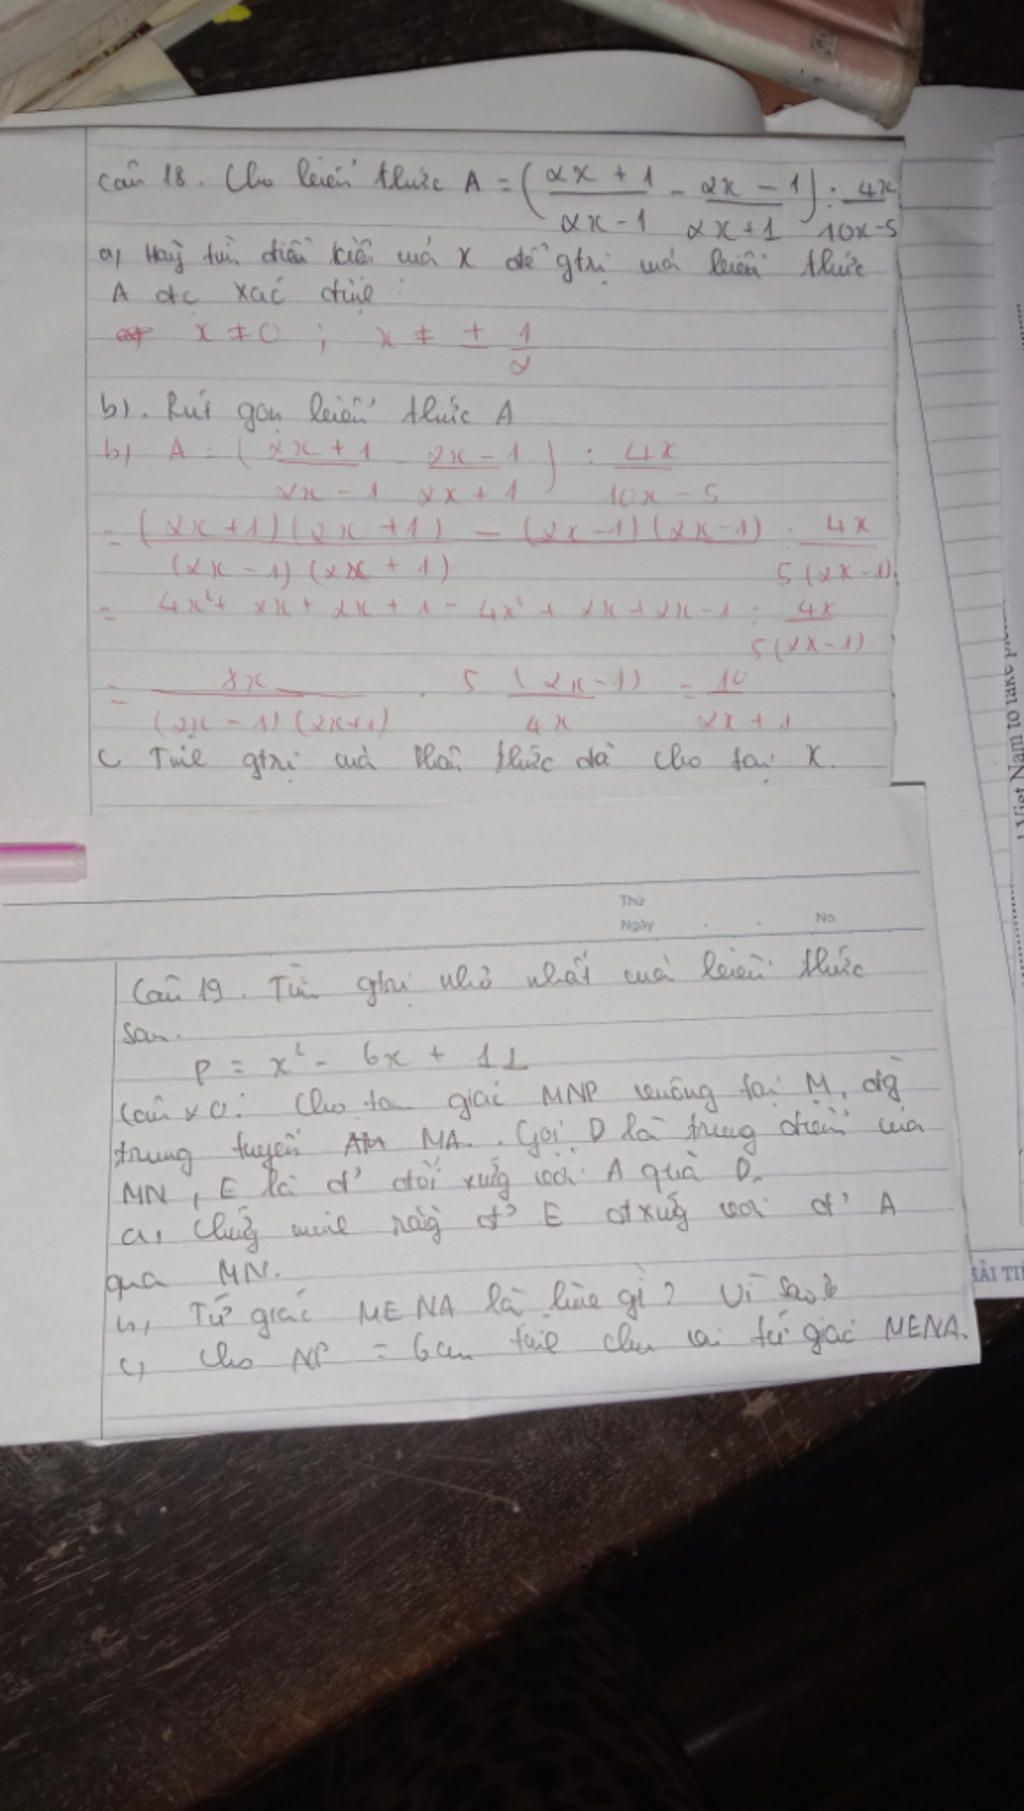 Câu 18. Cho biểu thức A = ( 2x + 1 / 2x - 1 - 2x - 1 / 2x + 1 ) : 4x / 10x - 5
a, Hãy tìm điều kiện của x để gtrị của biểu thức
A đc xác định
x ≠ 0 ; x ≠ ± 1/2
b). Rút gọn biểu thức A
b, A = ( 2x + 1 / 2x - 1 - 2x - 1 / 2x + 1 ) : 4x / 10x - 5
= (2x + 1) (2x + 1) - (2x - 1) (2x - 1) / (2x - 1) (2x + 1) : 4x / 5 (2x - 1)
= 4x² + 2x + 2x + 1 - 4x² + 2x + 2x - 1 : 4x / 5 (2x - 1)
= 8x / (2x - 1) (2x + 1) . 5 (2x - 1) / 4x = 10 / 2x + 1
c Tính gtrị của phân thức đã cho tại x.
Thứ
Ngày . . No.
Câu 19. Tìm gtrị nhỏ nhất của biểu thức
sau.
P = x² - 6x + 11
Câu 20: Cho tam giác MNP vuông tại M, đg
trung tuyến MA. Gọi D là trung điểm của
MN, E là đ' đối xứng với A qua D.
a, Chứng minh rằng đ' E đtxứng với đ' A
qua MN.
b, Tứ giác MENA là hình gì? Vì sao
c, Cho NP = 6cm tính chu vi tứ giác MENA.
Viet Nam to take